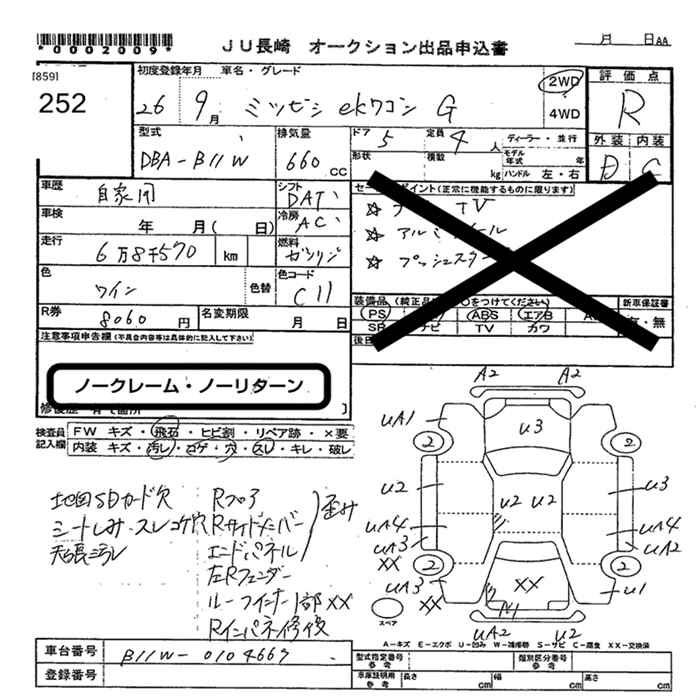 *0002009*
JU長崎 オークション出品申込書
月 日AA
[859]
252
初度登録年月 車名・グレード
26 9月 ミツビシ ekワゴン G
2WD
4WD
評価点
R
外装 内装
D C
型式 排気量
DBA-B11W 660 CC
ドア 5 定員 4 人 ディーラー・並行
形状 積数 kg モデル年式 年
ハンドル 左・右
車歴 自家用 シフト DAT
車検 年 月( 日) 冷房 AC
走行 6万8千570 km 燃料 ガソリン
色 ワイン 色替 色コード C11
R券 8060 円 名変期限 月 日
ポイント(正常に機能するものに限ります)
☆ TV
☆ アルミ
☆ プッシュスタ
装備品 (純正品 ○をつけてください) 新車保証書
PS ABS エアB 有・無
SR ナビ TV カワ
注意事項申告欄 (不具合内容等は具体的に記入して下さい)
ノークレーム・ノーリターン
検査員記入欄 FW キズ・飛石・ヒビ割・リペア跡・×要
内装 キズ・汚レ・コゲ・穴・スレ・キレ・破レ
地図SDカード欠 Rフロア
シートしみ・スレコゲ穴 Rサイドメンバー 歪み
天張ミラレ エンドパネル
左Rフェンダー
ルーフインナー1部XX
Rインパネ修復
A2 A2
UA1 U3
2 2
U2 U2 U2 U3
UA4 UA4
UA3 UA2
XX
2 2
UA3 XX U1
XX
スペア
UA2 U2
A-キズ E-エクボ U-凹み W-補修跡 S-サビ C-腐食 XX-交換済
車台番号 B11W-0104667
登録番号
型式指定番号 参考 類別区分番号 参考
車庫証明用 参考 長さ cm 幅 cm 高さ cm